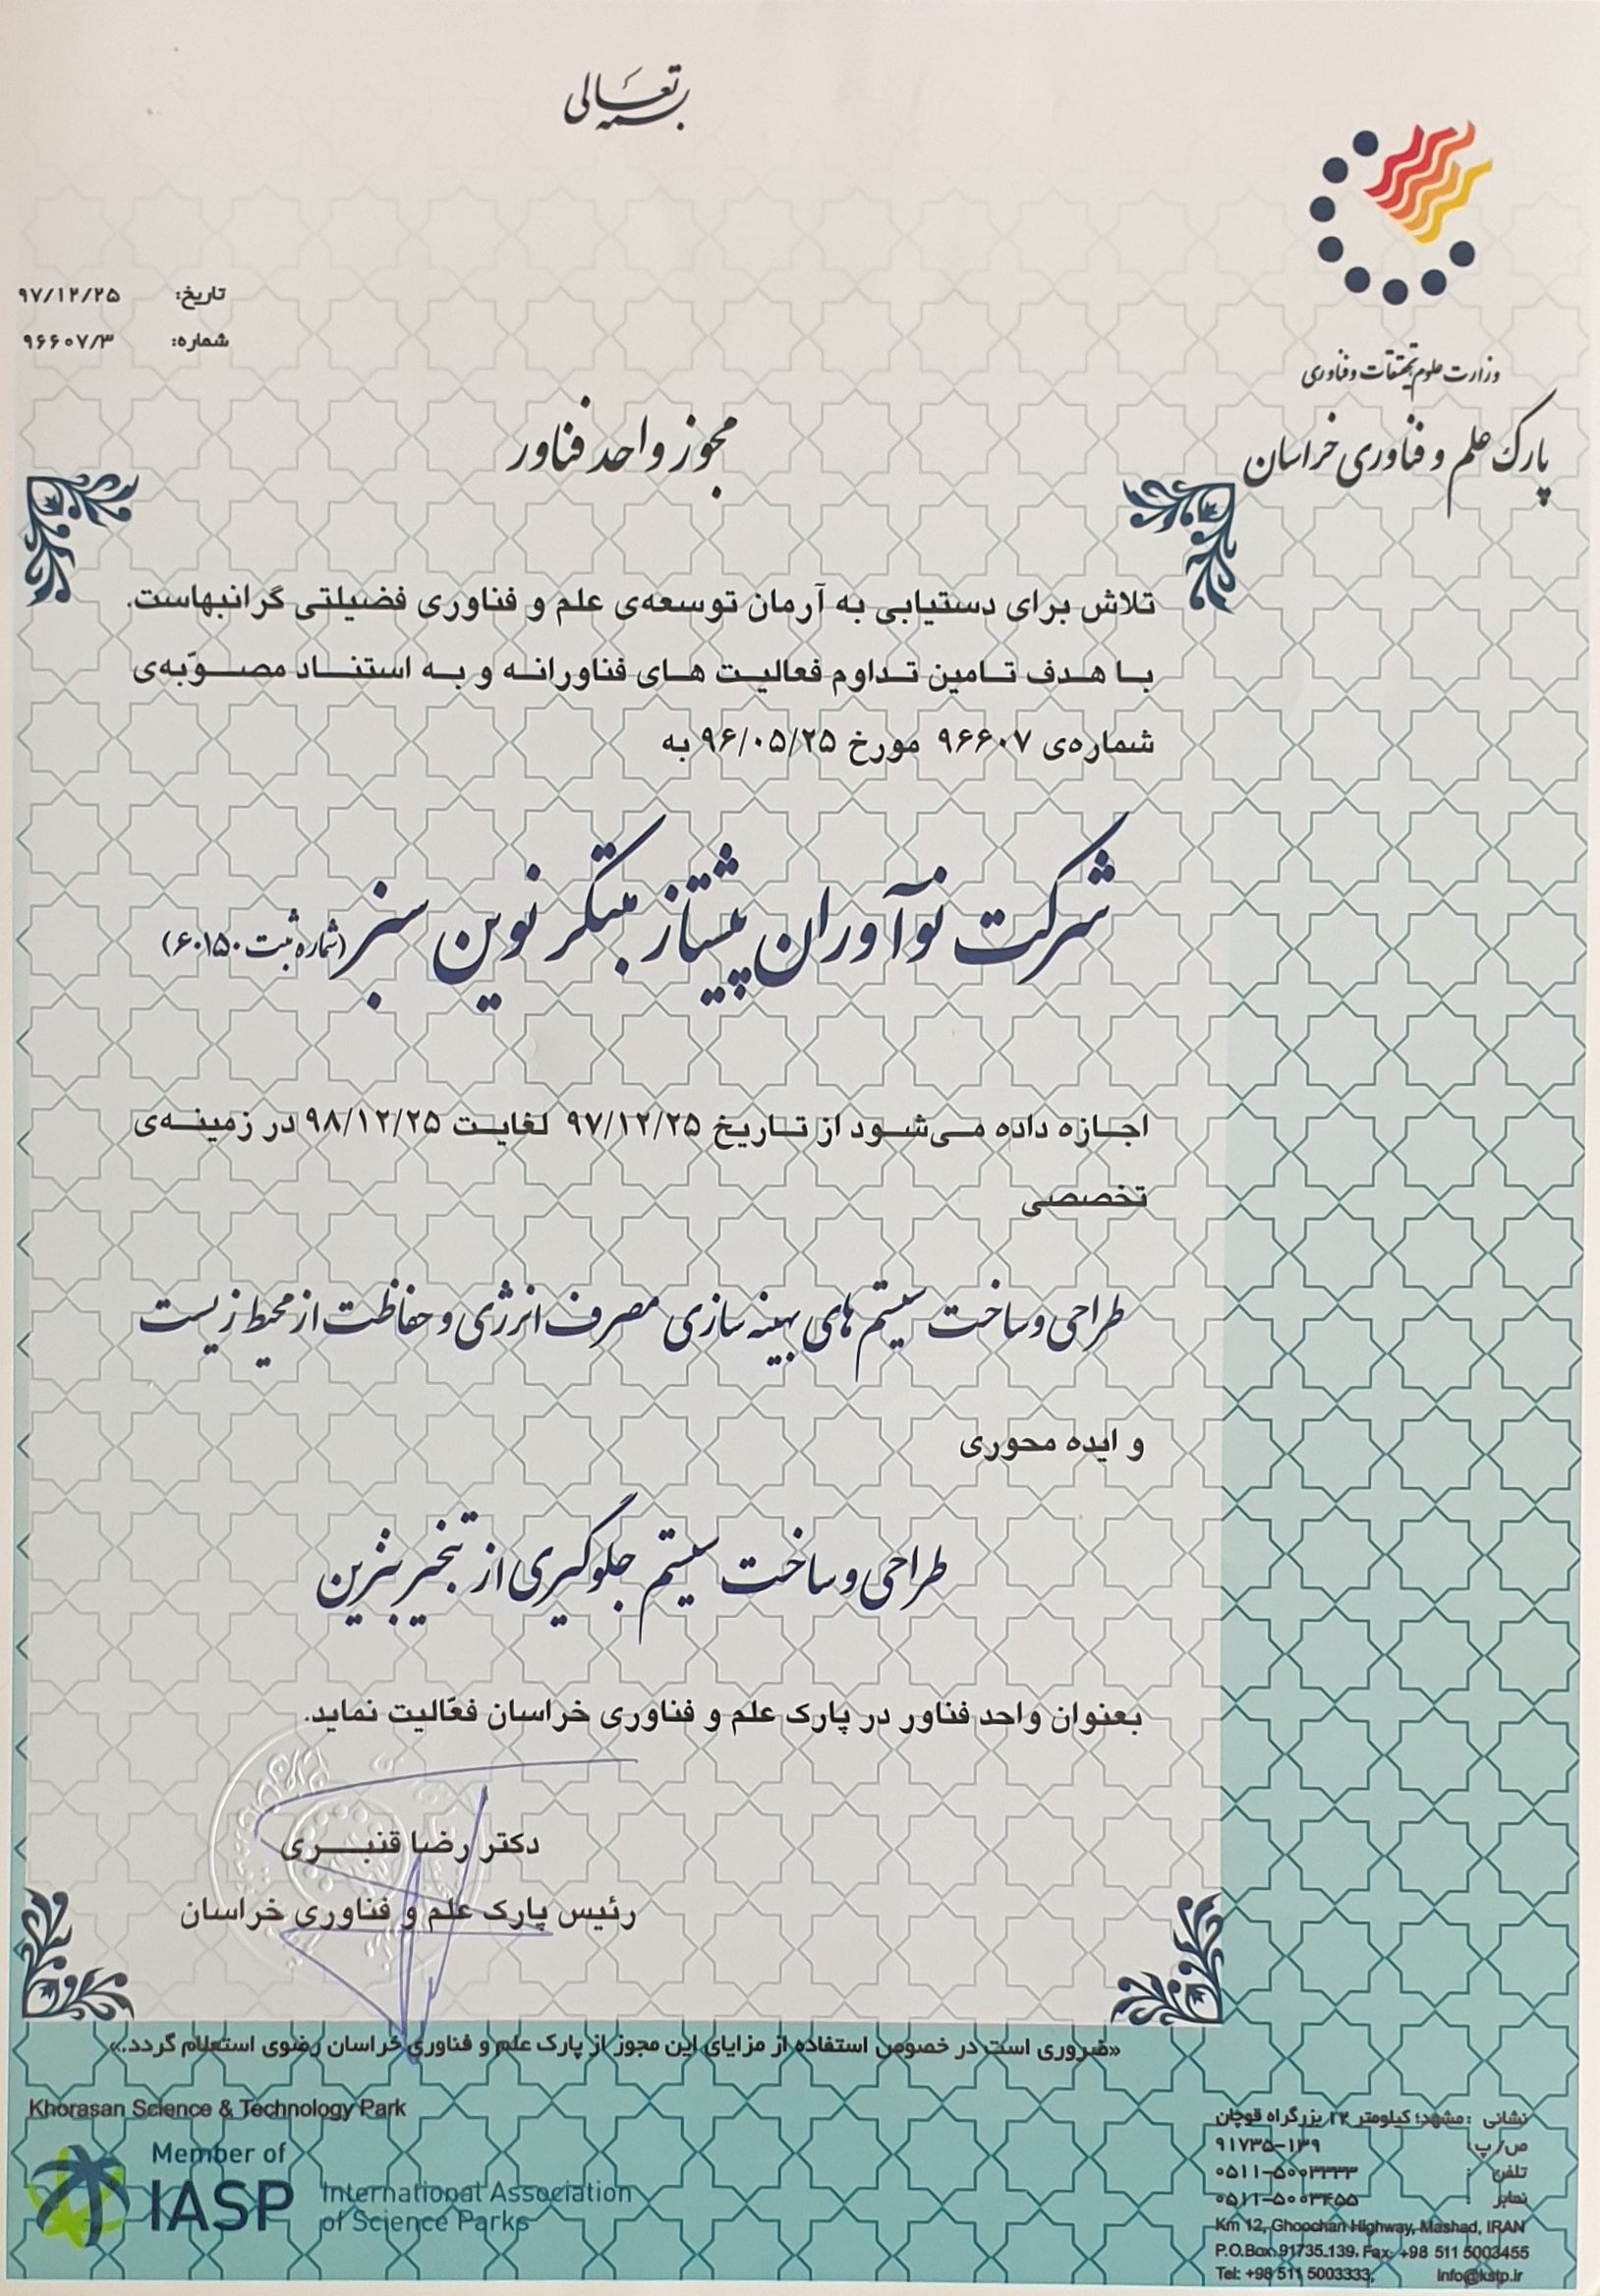 بسمه تعالی
تاریخ: ۹۷/۱۲/۲۵
شماره: ۹۶۶۰۷/۳
وزارت علوم، تحقیقات و فناوری
پارک علم و فناوری خراسان
مجوز واحد فناور
تلاش برای دستیابی به آرمان توسعه‌ی علم و فناوری فضیلتی گرانبهاست.
با هدف تامین تداوم فعالیت های فناورانه و به استناد مصوّبه‌ی
شماره‌ی ۹۶۶۰۷ مورخ ۹۶/۰۵/۲۵ به
شرکت نوآوران پیشتاز مبتکر نوین سبز (شماره ثبت ۶۰۱۵۰)
اجازه داده می‌شود از تاریخ ۹۷/۱۲/۲۵ لغایت ۹۸/۱۲/۲۵ در زمینه‌ی
تخصصی
طراحی و ساخت سیستم های بهینه سازی مصرف انرژی و حفاظت از محیط زیست
و ایده محوری
طراحی و ساخت سیستم جلوگیری از تبخیر بنزین
بعنوان واحد فناور در پارک علم و فناوری خراسان فعّالیت نماید.
دکتر رضا قنبری
رئیس پارک علم و فناوری خراسان
«ضروری است در خصوص استفاده از مزایای این مجوز از پارک علم و فناوری خراسان رضوی استعلام گردد.»
Khorasan Science & Technology Park
Member of
IASP
International Association
of Science Parks
نشانی : مشهد؛ کیلومتر ۱۲ بزرگراه قوچان
ص/پ : ۹۱۷۳۵-۱۳۹
تلفن : ۰۵۱۱-۵۰۰۳۳۳۳
نمابر : ۰۵۱۱-۵۰۰۳۴۵۵
Km 12, Ghoochan Highway, Mashad, IRAN
P.O.Box: 91735-139, Fax: +98 511 5003455
Tel: +98 511 5003333, info@kstp.ir